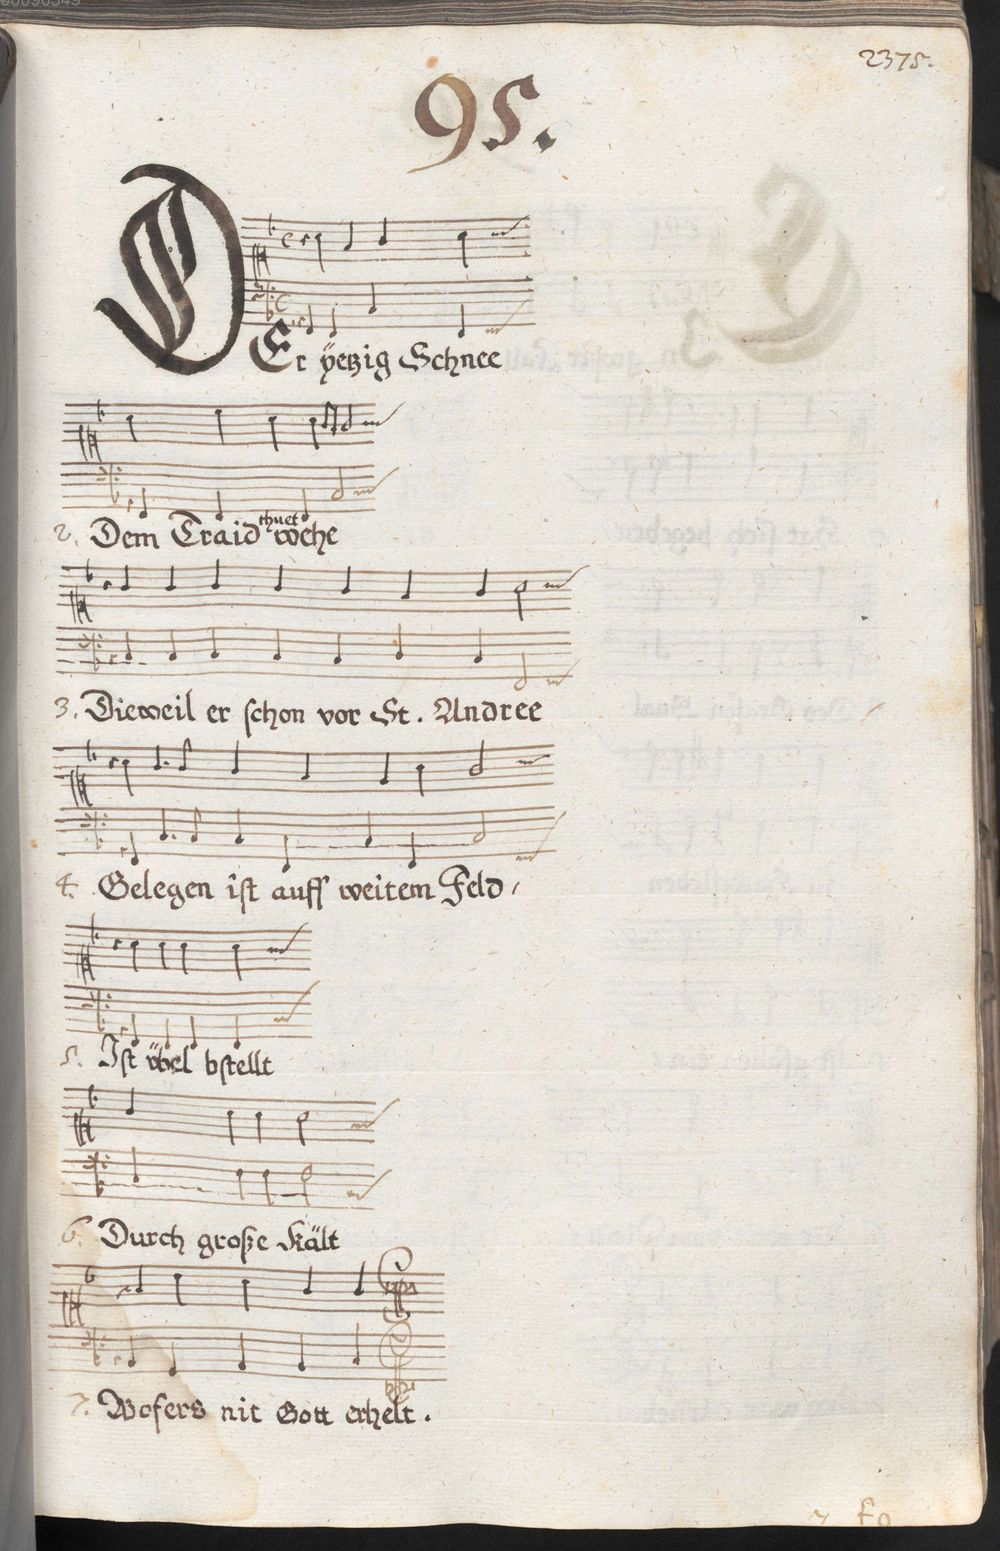 2375.
95.
DEr ÿetzig Schnee
2. Dem Traid thuet wehe
3. Dieweil er schon vor St. Andree
4. Gelegen ist auff weitem Feld,
5. Ist übel bstellt
6. Durch große Kält
7. Wofers nit Gott erhelt.